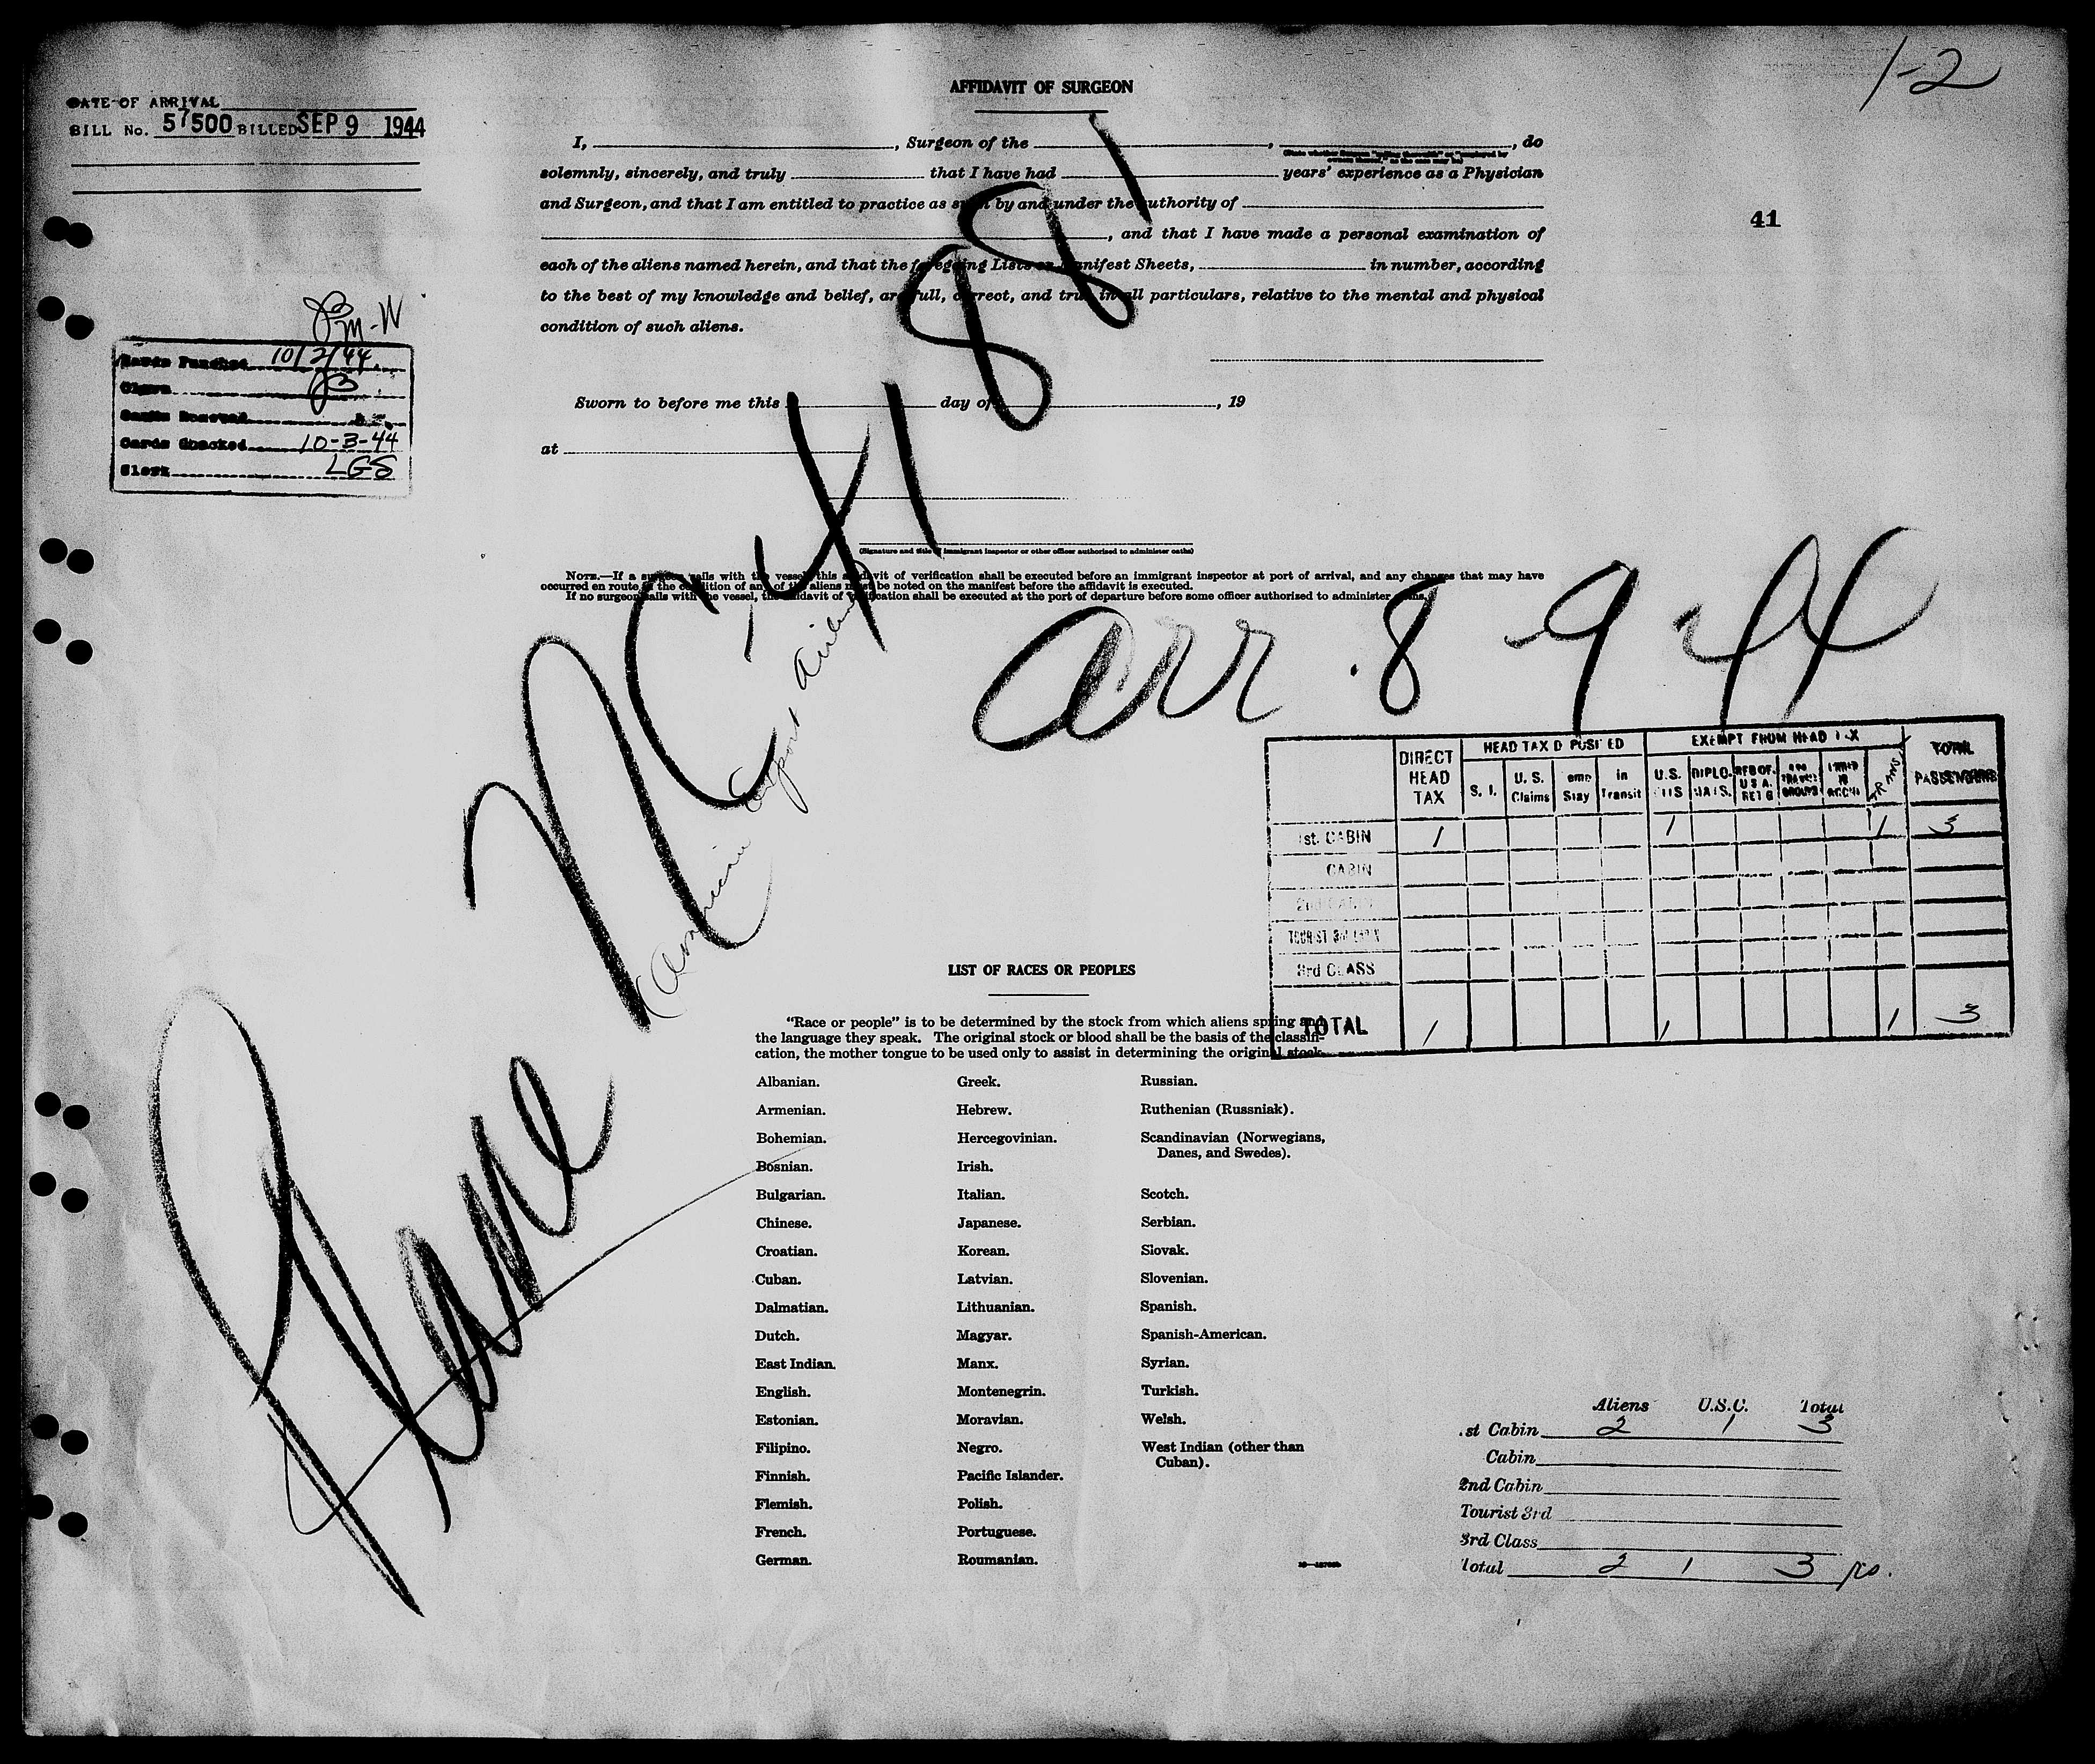 1-2
DATE OF ARRIVAL
BILL No. 57500 BILLED SEP 9 1944
AFFIDAVIT OF SURGEON
I, , Surgeon of the , , do
solemnly, sincerely, and truly that I have had years' experience as a Physician
and Surgeon, and that I am entitled to practice as such by and under the authority of
, and that I have made a personal examination of
each of the aliens named herein, and that the foregoing Lists or Manifest Sheets, in number, according
to the best of my knowledge and belief, are full, correct, and true in all particulars, relative to the mental and physical
condition of such aliens.
41
Cards Punched 10/2/44
Cards Checked 10-3-44
Clerk LGS
Sworn to before me this day of , 19
at
(Signature and title of immigrant inspector or other officer authorized to administer oaths)
NOTE.—If a surgeon sails with the vessel, this affidavit of verification shall be executed before an immigrant inspector at port of arrival, and any changes that may have
occurred en route in the condition of any of the aliens must be noted on the manifest before the affidavit is executed.
If no surgeon sails with the vessel, the affidavit of verification shall be executed at the port of departure before some officer authorized to administer oaths.
Plane NC-41881
(American Export Airlines
arr 8-9-44
DIRECT HEAD TAX
HEAD TAX DEPOSITED
EXEMPT FROM HEAD TAX
TOTAL PASSENGERS
S. I. U. S. Claims Temp Stay in Transit U.S. CITS DIPLOMATS. RES OF. U S A. RETG TRANS
1st. CABIN 1 1 1 3
CABIN
2nd CABIN
TOURIST 3rd CABIN
3rd CLASS
TOTAL 1 1 1 3
LIST OF RACES OR PEOPLES
"Race or people" is to be determined by the stock from which aliens spring and
the language they speak. The original stock or blood shall be the basis of the classifi-
cation, the mother tongue to be used only to assist in determining the original stock.
Albanian. Greek. Russian.
Armenian. Hebrew. Ruthenian (Russniak).
Bohemian. Hercegovinian. Scandinavian (Norwegians,
Danes, and Swedes).
Bosnian. Irish.
Bulgarian. Italian. Scotch.
Chinese. Japanese. Serbian.
Croatian. Korean. Slovak.
Cuban. Latvian. Slovenian.
Dalmatian. Lithuanian. Spanish.
Dutch. Magyar. Spanish-American.
East Indian. Manx. Syrian.
English. Montenegrin. Turkish.
Estonian. Moravian. Welsh.
Filipino. Negro. West Indian (other than
Cuban).
Finnish. Pacific Islander.
Flemish. Polish.
French. Portuguese.
German. Roumanian.
Aliens U.S.C. Total
1st Cabin 2 1 3
Cabin
2nd Cabin
Tourist 3rd
3rd Class
Total 2 1 3